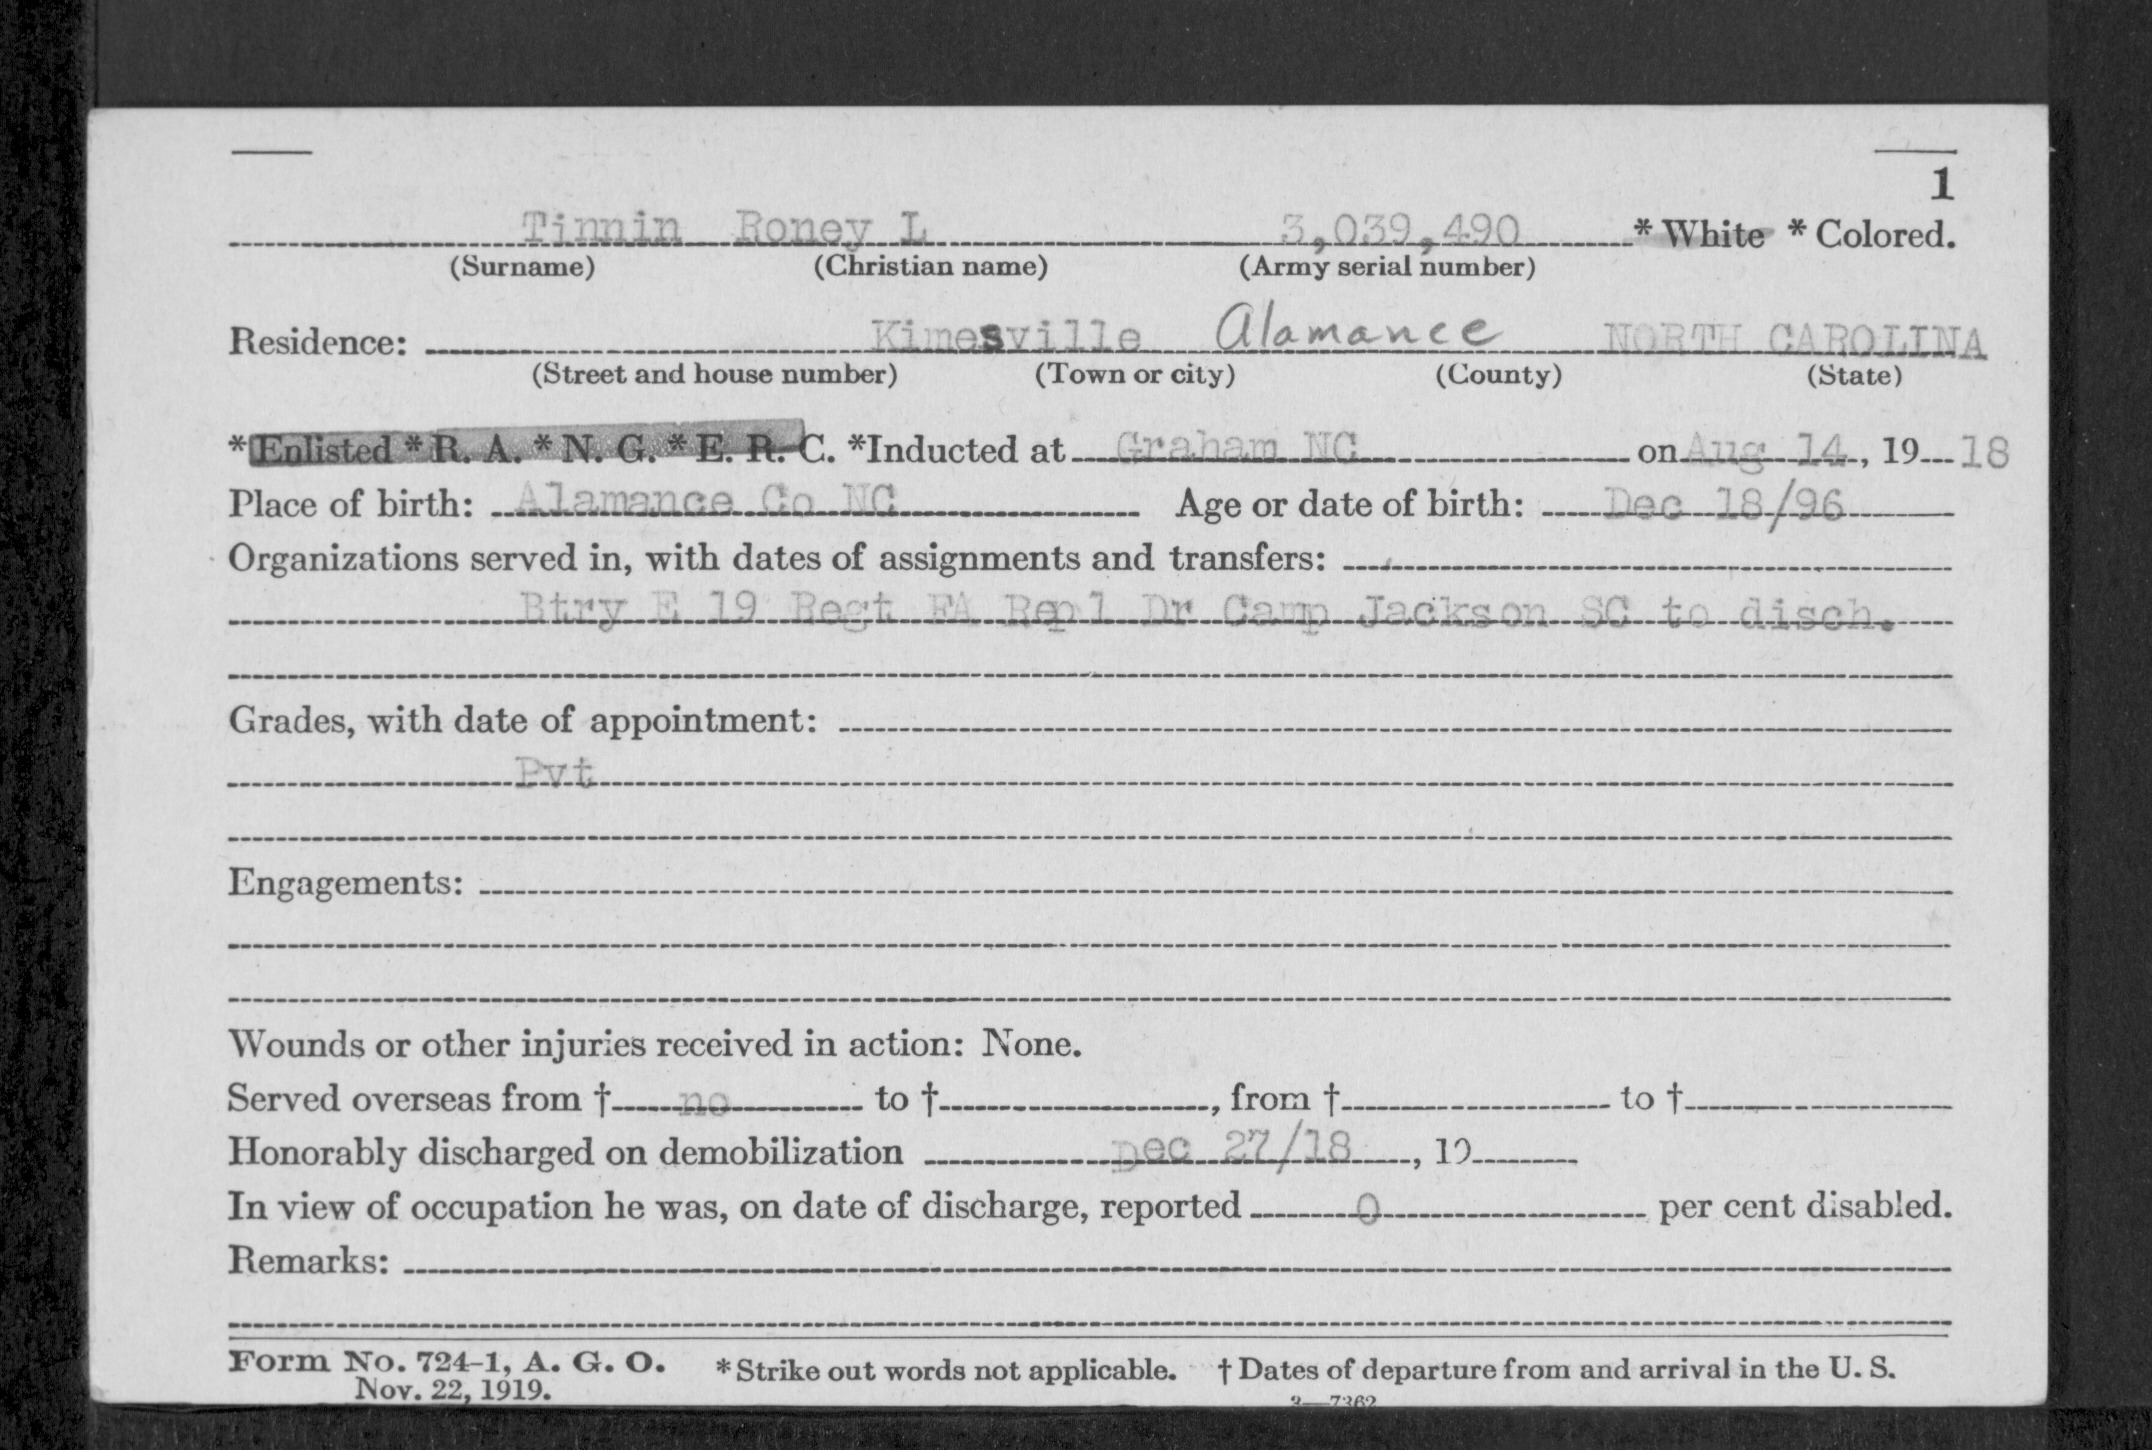 1
Tinnin Roney L 3,039,490 * White * Colored.
(Surname) (Christian name) (Army serial number)
Residence: Kimesville Alamance NORTH CAROLINA
(Street and house number) (Town or city) (County) (State)
*Enlisted * R. A. * N. G. * E. R. C. *Inducted at Graham NC on Aug 14, 19 18
Place of birth: Alamance Co NC Age or date of birth: Dec 18/96
Organizations served in, with dates of assignments and transfers:
Btry E 19 Regt FA Repl Dr Camp Jackson SC to disch.
Grades, with date of appointment:
Pvt
Engagements:
Wounds or other injuries received in action: None.
Served overseas from † no to †, from † to †
Honorably discharged on demobilization Dec 27/18, 19
In view of occupation he was, on date of discharge, reported 0 per cent disabled.
Remarks:
Form No. 724-1, A. G. O. * Strike out words not applicable. † Dates of departure from and arrival in the U. S.
Nov. 22, 1919. 3—7362